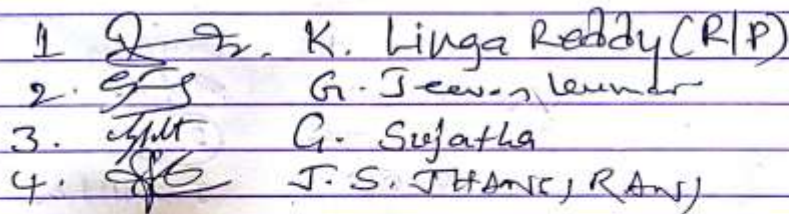 1 K. Linga Reddy (R/P)
2. G. Jeevan kumar
3. G. Sujatha
4. J. S. JHANSI RANI